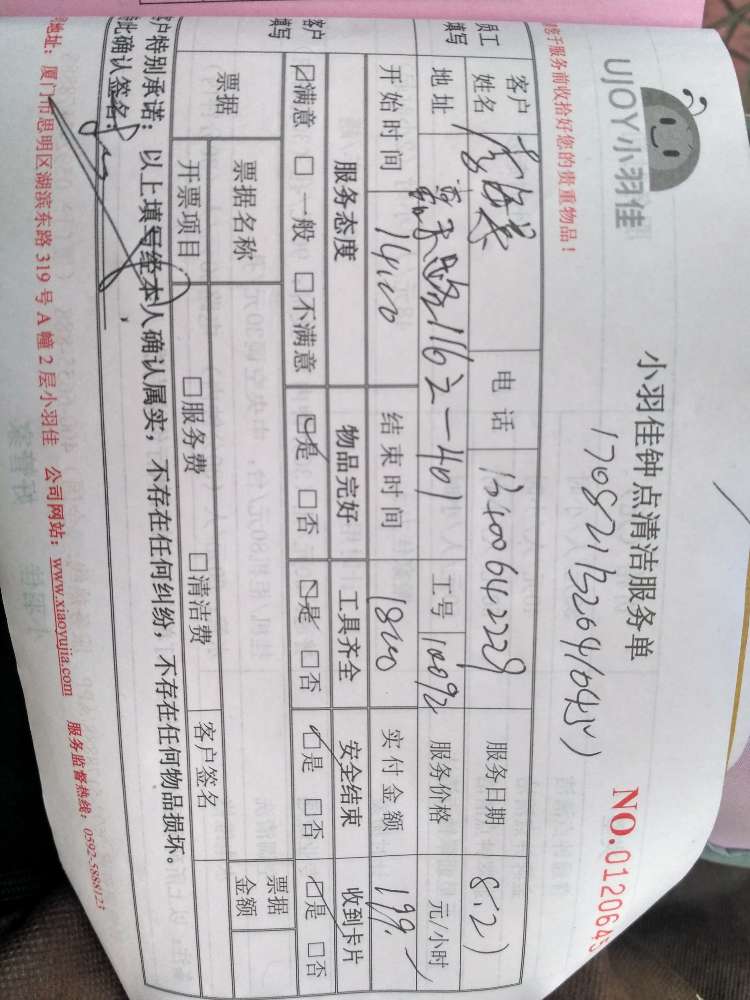 UJOY小羽佳
小羽佳钟点清洁服务单
NO.012064
于服务前收拾好您的贵重物品！
员工填写 客户姓名 电话 13400642229 服务日期 8.21
地址 1162-401 工号 10092 服务价格 元/小时
开始时间 14:00 结束时间 18:00 实付金额 199.
客户填写 服务态度 物品完好 工具齐全 安全结束 收到卡片
☑满意 □一般 □不满意 ☑是 □否 ☑是 □否 ☑是 □否 ☑是 □否
票据 票据名称 票据金额
开票项目 □服务费 □清洁费 客户签名
户特别承诺：以上填写经本人确认属实，不存在任何纠纷，不存在任何物品损坏。
此确认签名：
地址：厦门市思明区湖滨东路 319 号 A 幢 2 层小羽佳 公司网站：www.xiaoyujia.com 服务监督热线：0592-5888123